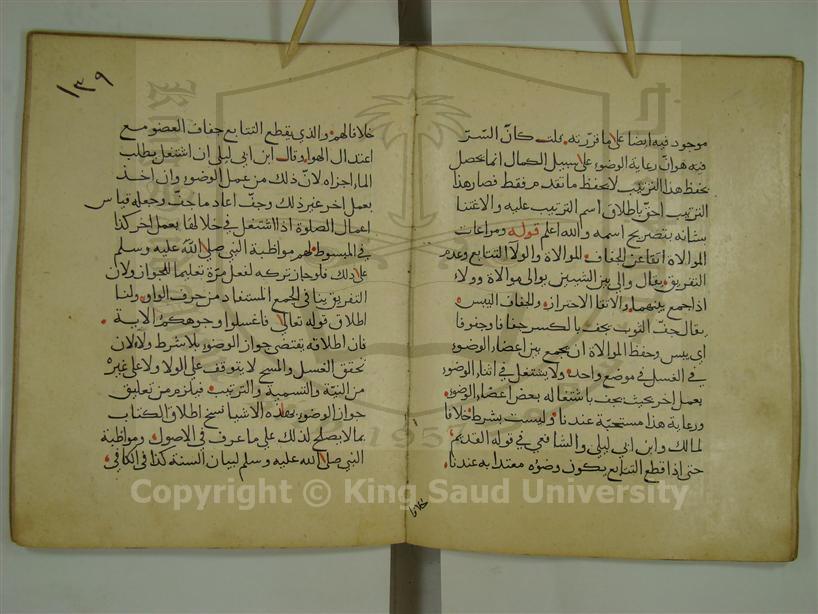 موجود فيه ايضا على ما قررته قلت كأنّ السّرّ
فيه هو انّ رعاية الوضوء على سبيل الكمال انما يحصل
بحفظ هذا الترتيب لا بحفظ ما تقدم فقط فصار هذا
الترتيب احقّ باطلاق اسم الترتيب عليه والاعتنا
بشانه بتصريح اسمه والله اعلم قوله ومراعات
الموالاة اتقا عن الجفاف الموالاة والولآ التتابع وعدم
التفريق يقال والى بين الشيئين يوالى موالاة وولاء
اذا جمع بينهما والاتقا الاحتراز والجفاف اليبس
يقال جفّ الثوب يجف بالكسر جفافا وجفوفا
اى يبس وحفظ الموالاة ان يجمع بين اعضاء الوضوء
في الغسل في موضع واحد ولا يشتغل في اثناء الوضوء
بعمل اخر بحيث يجف باشتغاله بعض اعضاء الوضوء
ورعاية هذا مستحبّة عندنا وليست بشرط خلافا
لمالك وابن ابى ليلى والشافعي في قوله القديم
حتى اذا قطع التتابع يكون وضوه معتدا به عندنا
خلافا
١٣٩
خلافا لهم والذي يقطع التتابع جفاف العضو مع
اعتدال الهوا وقال ابن ابى ليلى ان اشتغل بطلب
الماء اجزاه لانّ ذلك من عمل الوضوء وان اخذ
بعمل اخر غير ذلك وجفّ اعاد ما جفّ وجعله قياس
اعمال الصلوة اذا اشتغل في خلالها بعمل اخر كذا
في المبسوط لهم مواظبة النبي صلى الله عليه وسلم
على ذلك فلو جاز تركه لفعل مرّة تعليما للجواز ولان
التفريق ينافى الجمع المستفاد من حرف الواو ولنا
اطلاق قوله تعالى فاغسلوا وجوهكم الاية
فان اطلاقه يقتضى جواز الوضوء بلا شرط ولاء لان
تحقق الغسل والمسح لا يتوقف على الولا ولا على غيره
من النية والتسمية والترتيب فيلزم من تعليق
جواز الوضوء بهذه الاشيا نسخ اطلاق الكتاب
بما لا يصلح لذلك على ما عرف في الاصول ومواظبة
النبي صلى الله عليه وسلم لبيان السنة كذا في الكافي
Copyright © King Saud University
1957